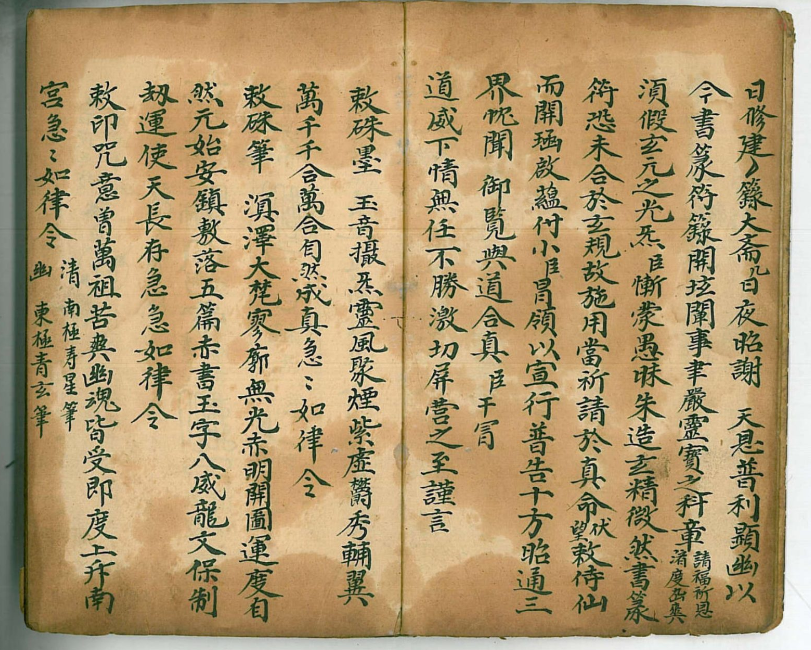 日修建〻籙大斋几日夜昭謝 天恩普利顕幽以
今書篆符籙開闡事聿嚴靈寶之科章 請福祈恩
済度幽爽
湏假玄元之光炁臣慚蒙愚昧朱造玄精微然書篆
符恐未合於玄規故施用當祈請於真命伏望敕侍仙
而開函啟蘊付小臣冒領以宣行普告十方昭通三
界怳聞 御覧與道合真臣干冐
道威下情無任不勝激切屏营之至謹言
敕硃墨 玉音攝炁靈風聚煙紫虚欝秀輔翼
萬千千合萬合自然成真急〻如律令
敕硃筆 溟澤大梵寥廓無光赤明開圖運度自
然元始安鎮敷落五篇赤書玉字八威龍文保制
刼運使天長存急急如律令
敕印咒意曽萬祖苦爽幽魂皆受即度上升南
宮急〻如律令
清 南極寿星筆
幽 東極青玄筆